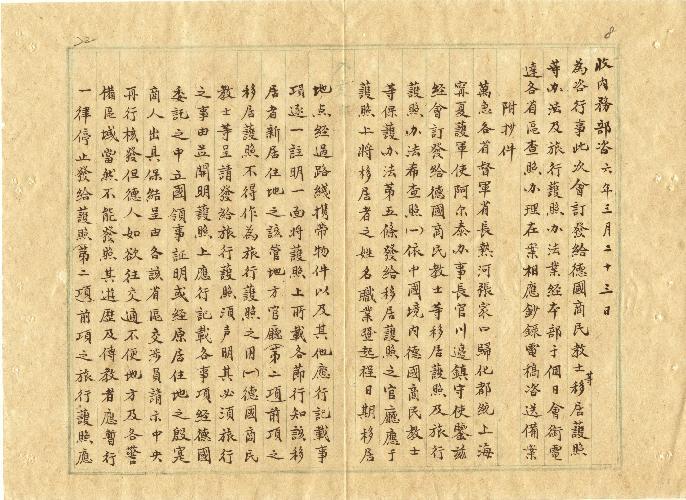 8
收內務部咨 六年三月二十三日
為咨行事此次會訂發給德國商民教士等移居護照
等办法及旅行護照办法業經本部于個日會銜電
達各省區查照办理在案相應鈔錄電稿咨送備案
附抄件
萬急各省督軍省長熱河張家口歸化都統上海
甯夏護軍使阿尔泰办事長官川邊鎮守使鑒茲
經會訂發給德國商民教士等移居護照及旅行
護照办法希查照(一)依中國境內德國商民教士
等保護办法第五條發給移居護照之官廳應于
護照上將移居者之姓名職業暨起程日期移居
地点經過路綫携帶物件以及其他應行記載事
項逐一註明一面將護照上所載各節行知該移
居者新居住地之該管地方官廳(第二項前項之
移居護照不得作為旅行護照之用(一)德國商民
教士等呈請發給旅行護照須声明其必須旅行
之事由並開明護照上應行記載各事項經德國
委託之中立國領事証明或經原居住地之殷實
商人出具保結呈由各該省區交涉員請示中央
再行核發但德人如欲往交通不便地方及各警
備區域當然不能發照其遊歷及傳教者應暫行
一律停止發給護照第二項前項之旅行護照應